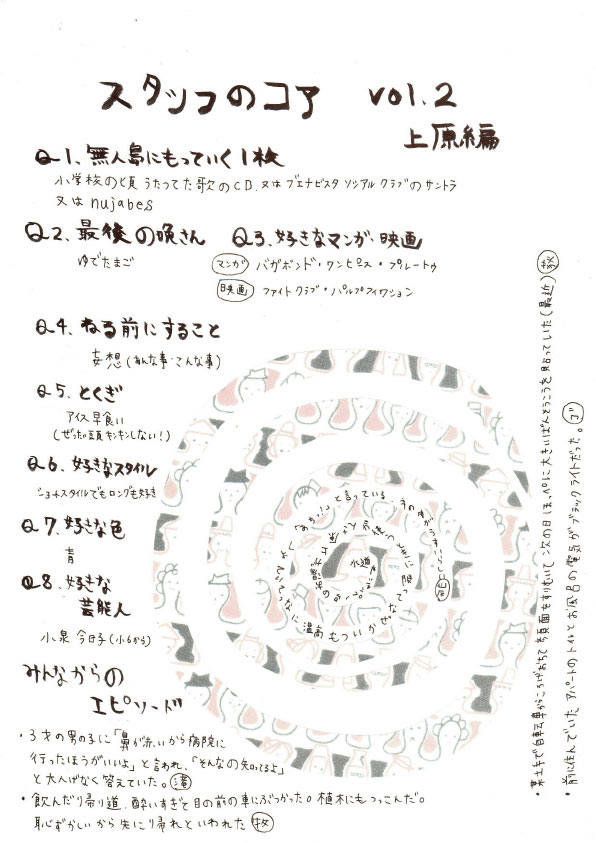 スタッフのコア vol.2
上原編
Q1、無人島にもっていく1枚
小学校の頃うたってた歌のCD、又はブエナビスタソシアルクラブのサントラ
又はnujabes
Q2、最後の晩さん
ゆでたまご
Q3、好きなマンガ・映画
マンガ バガボンド・ワンピース・プルートゥ
映画 ファイトクラブ・パルプフィクション
Q4、ねる前にすること
妄想(あんな事・こんな事)
Q5、とくぎ
アイス早食い
(ぜったい頭キンキンしない!)
Q6、好きなスタイル
ショートスタイルでもロングも好き
Q7、好きな色
青
Q8、好きな
芸能人
小泉 今日子(小6から)
みんなからの
エピソード
・3才の男の子に「鼻が赤いから病院に
行ったほうがいいよ」と言われ、「そんなの知ってるよ」
と大人げなく答えていた。
・飲んだ帰り道、酔いすぎて目の前の車にぶつかった。植木にもつっこんだ。
恥ずかしいから先に帰れといわれた
・前に住んでいたアパートのトイレとお風呂の電気がブラックライトだった。